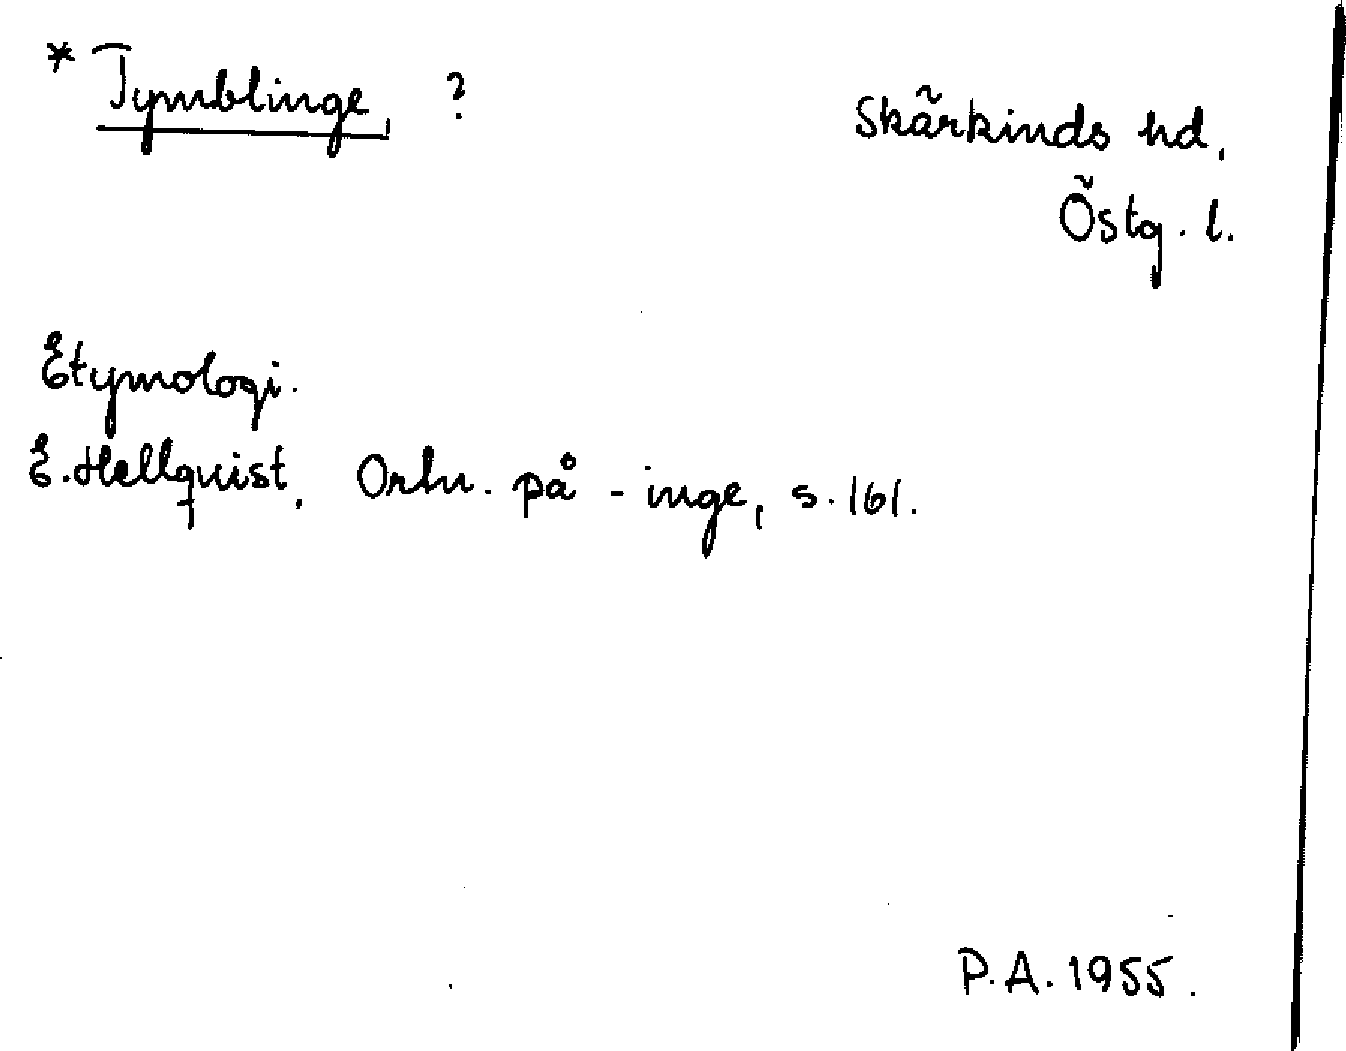 * Tymblinge, ?
Skärkinds hd,
Östg. l.
Etymologi.
E. Hellquist, Ortn. på -inge, s. 161.
P.A. 1955.